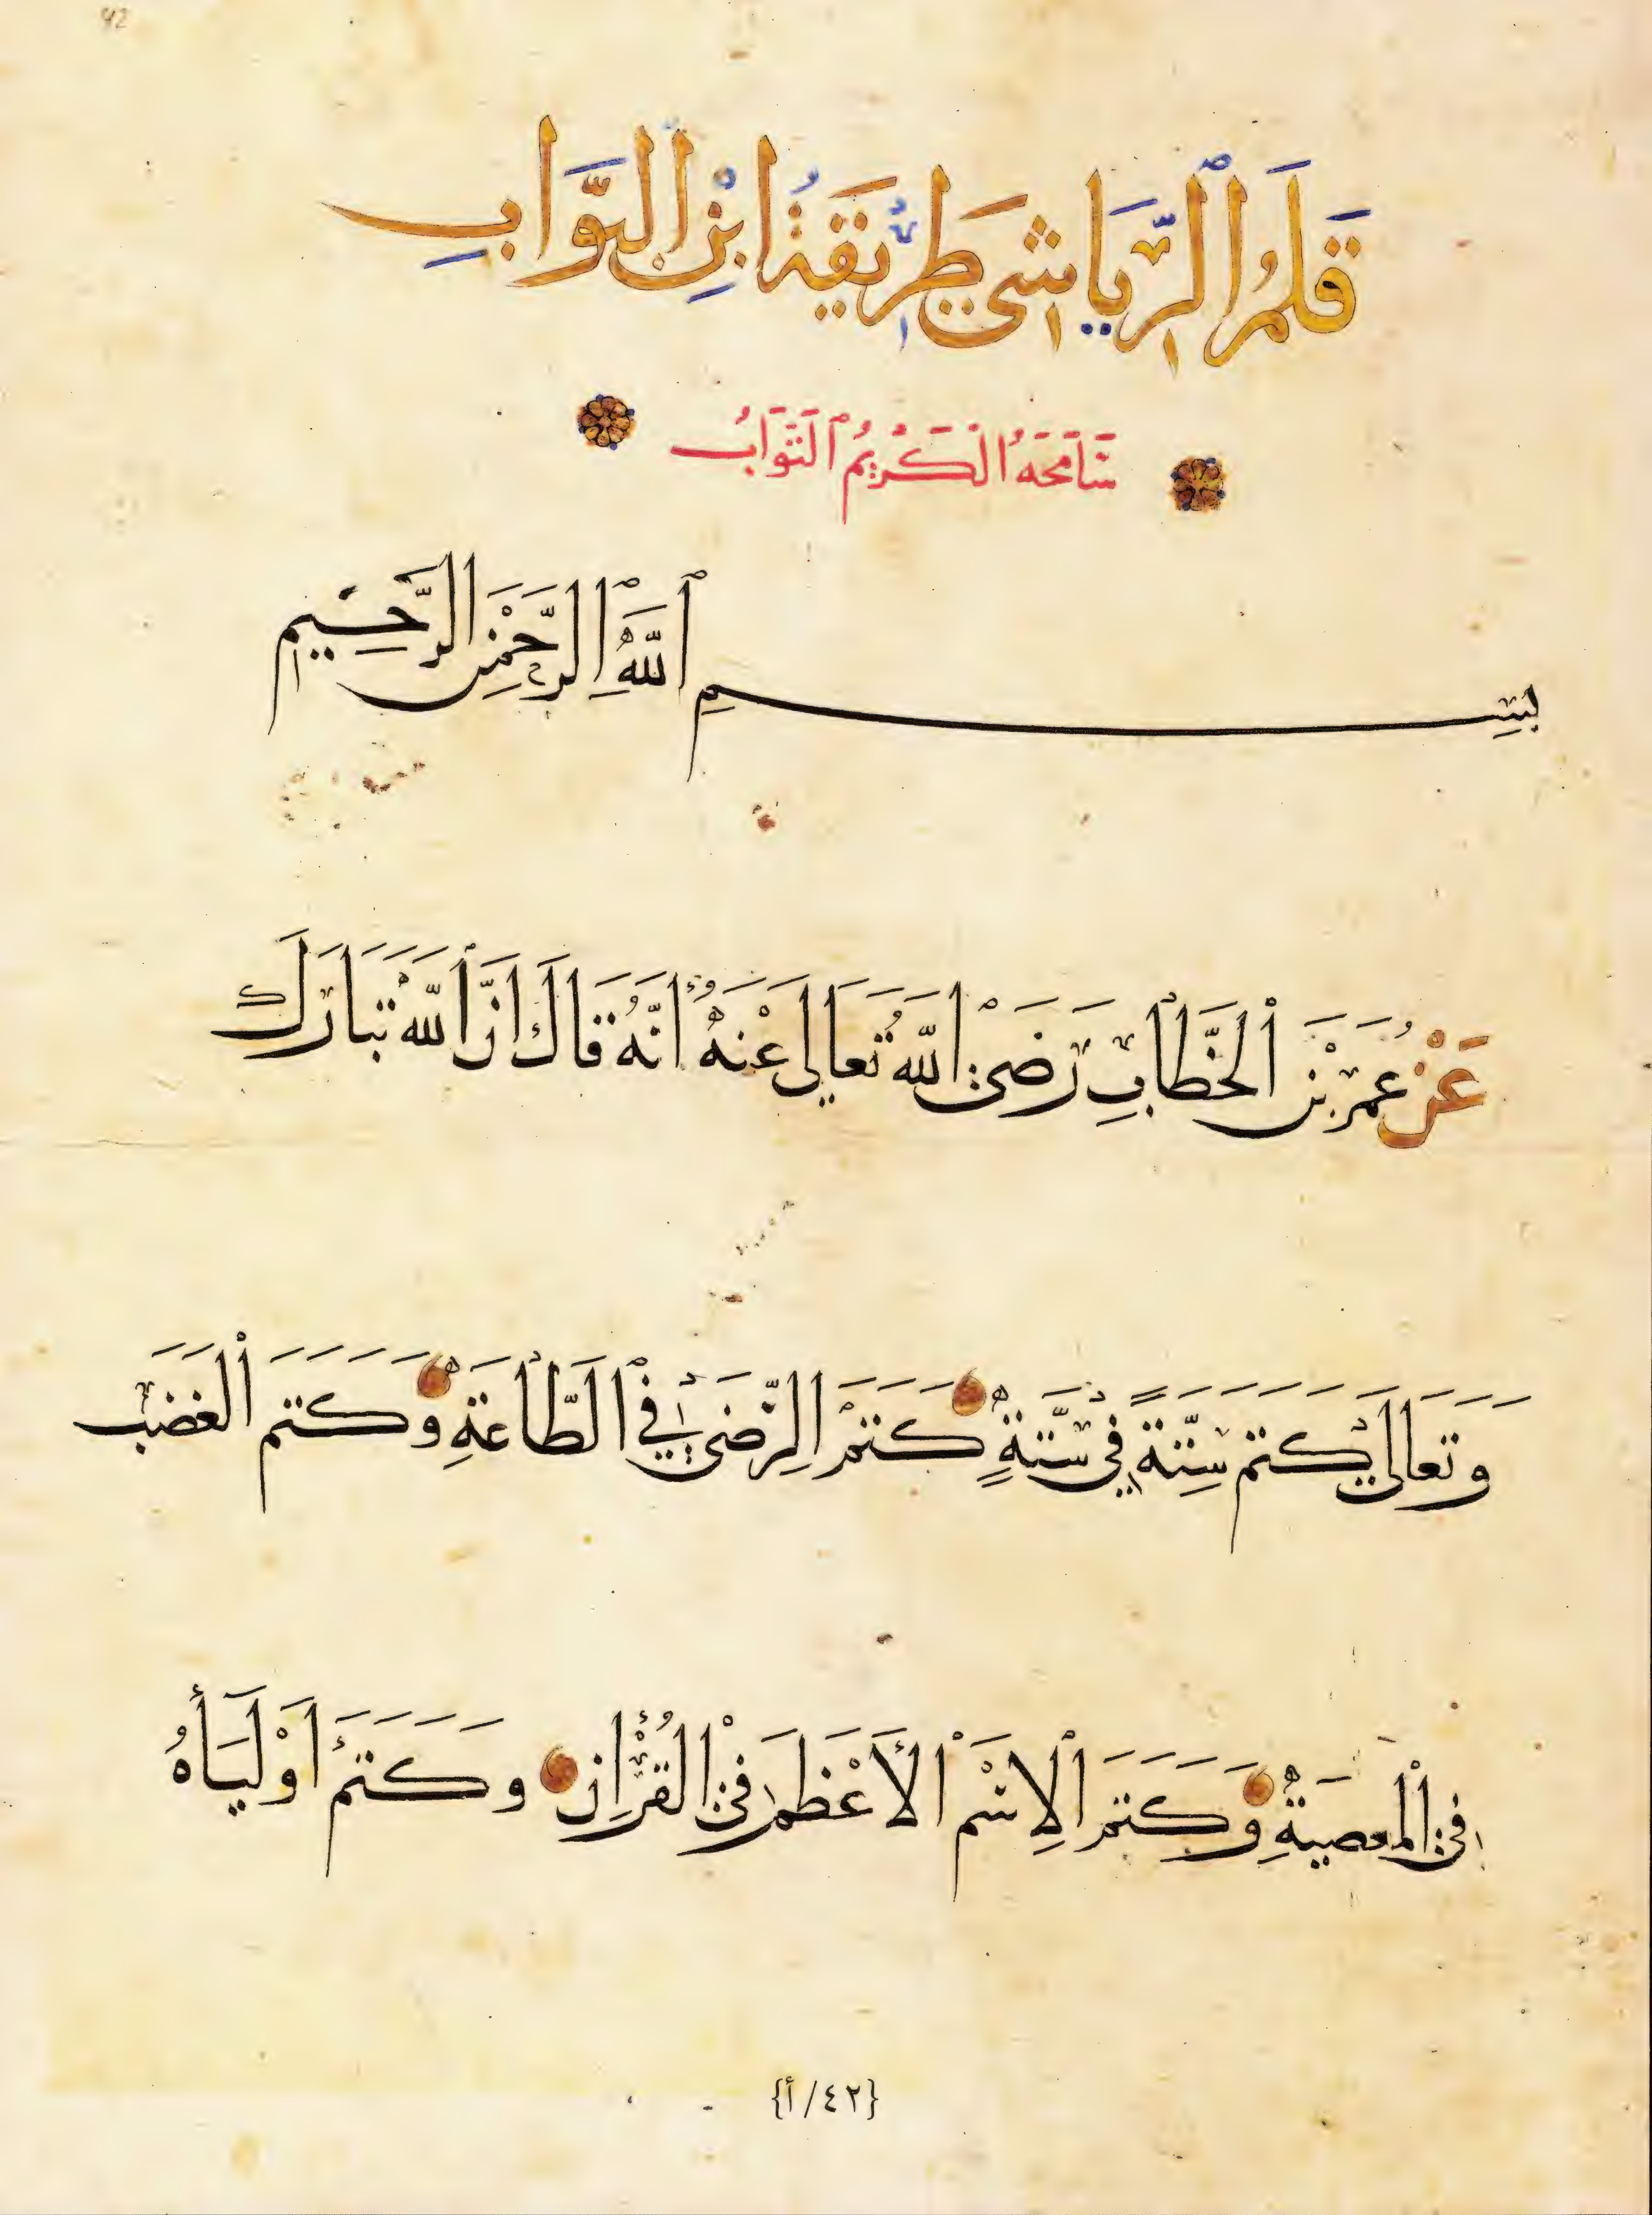 42
قَلَمُ ٱلرِّيَاشِي طَرِيقَةُ ابْنِ الْبَوَّابِ
سَامَحَهُ الْكَرِيمُ ٱلتَّوَّابُ
بِسْمِ ٱللَّهِ ٱلرَّحْمٰنِ الرَّحِيمِ
عَنْ عُمَرَ بْنِ الْخَطَّابِ رَضِيَ اللَّهُ تَعَالَى عَنْهُ أَنَّهُ قَالَ إِنَّ ٱللَّهَ تَبَارَكَ
وَتَعَالَى يَكْتُمُ سِتَّةً فِي سِتَّةٍ كَتَمَ الرِّضَى فِي ٱلطَّاعَةِ وَكَتَمَ الْغَضَبَ
فِي الْمَعْصِيَةِ وَكَتَمَ ٱلِاسْمَ الْأَعْظَمَ فِي الْقُرْآنِ وَكَتَمَ أَوْلِيَاهُ
{٤٢/أ}